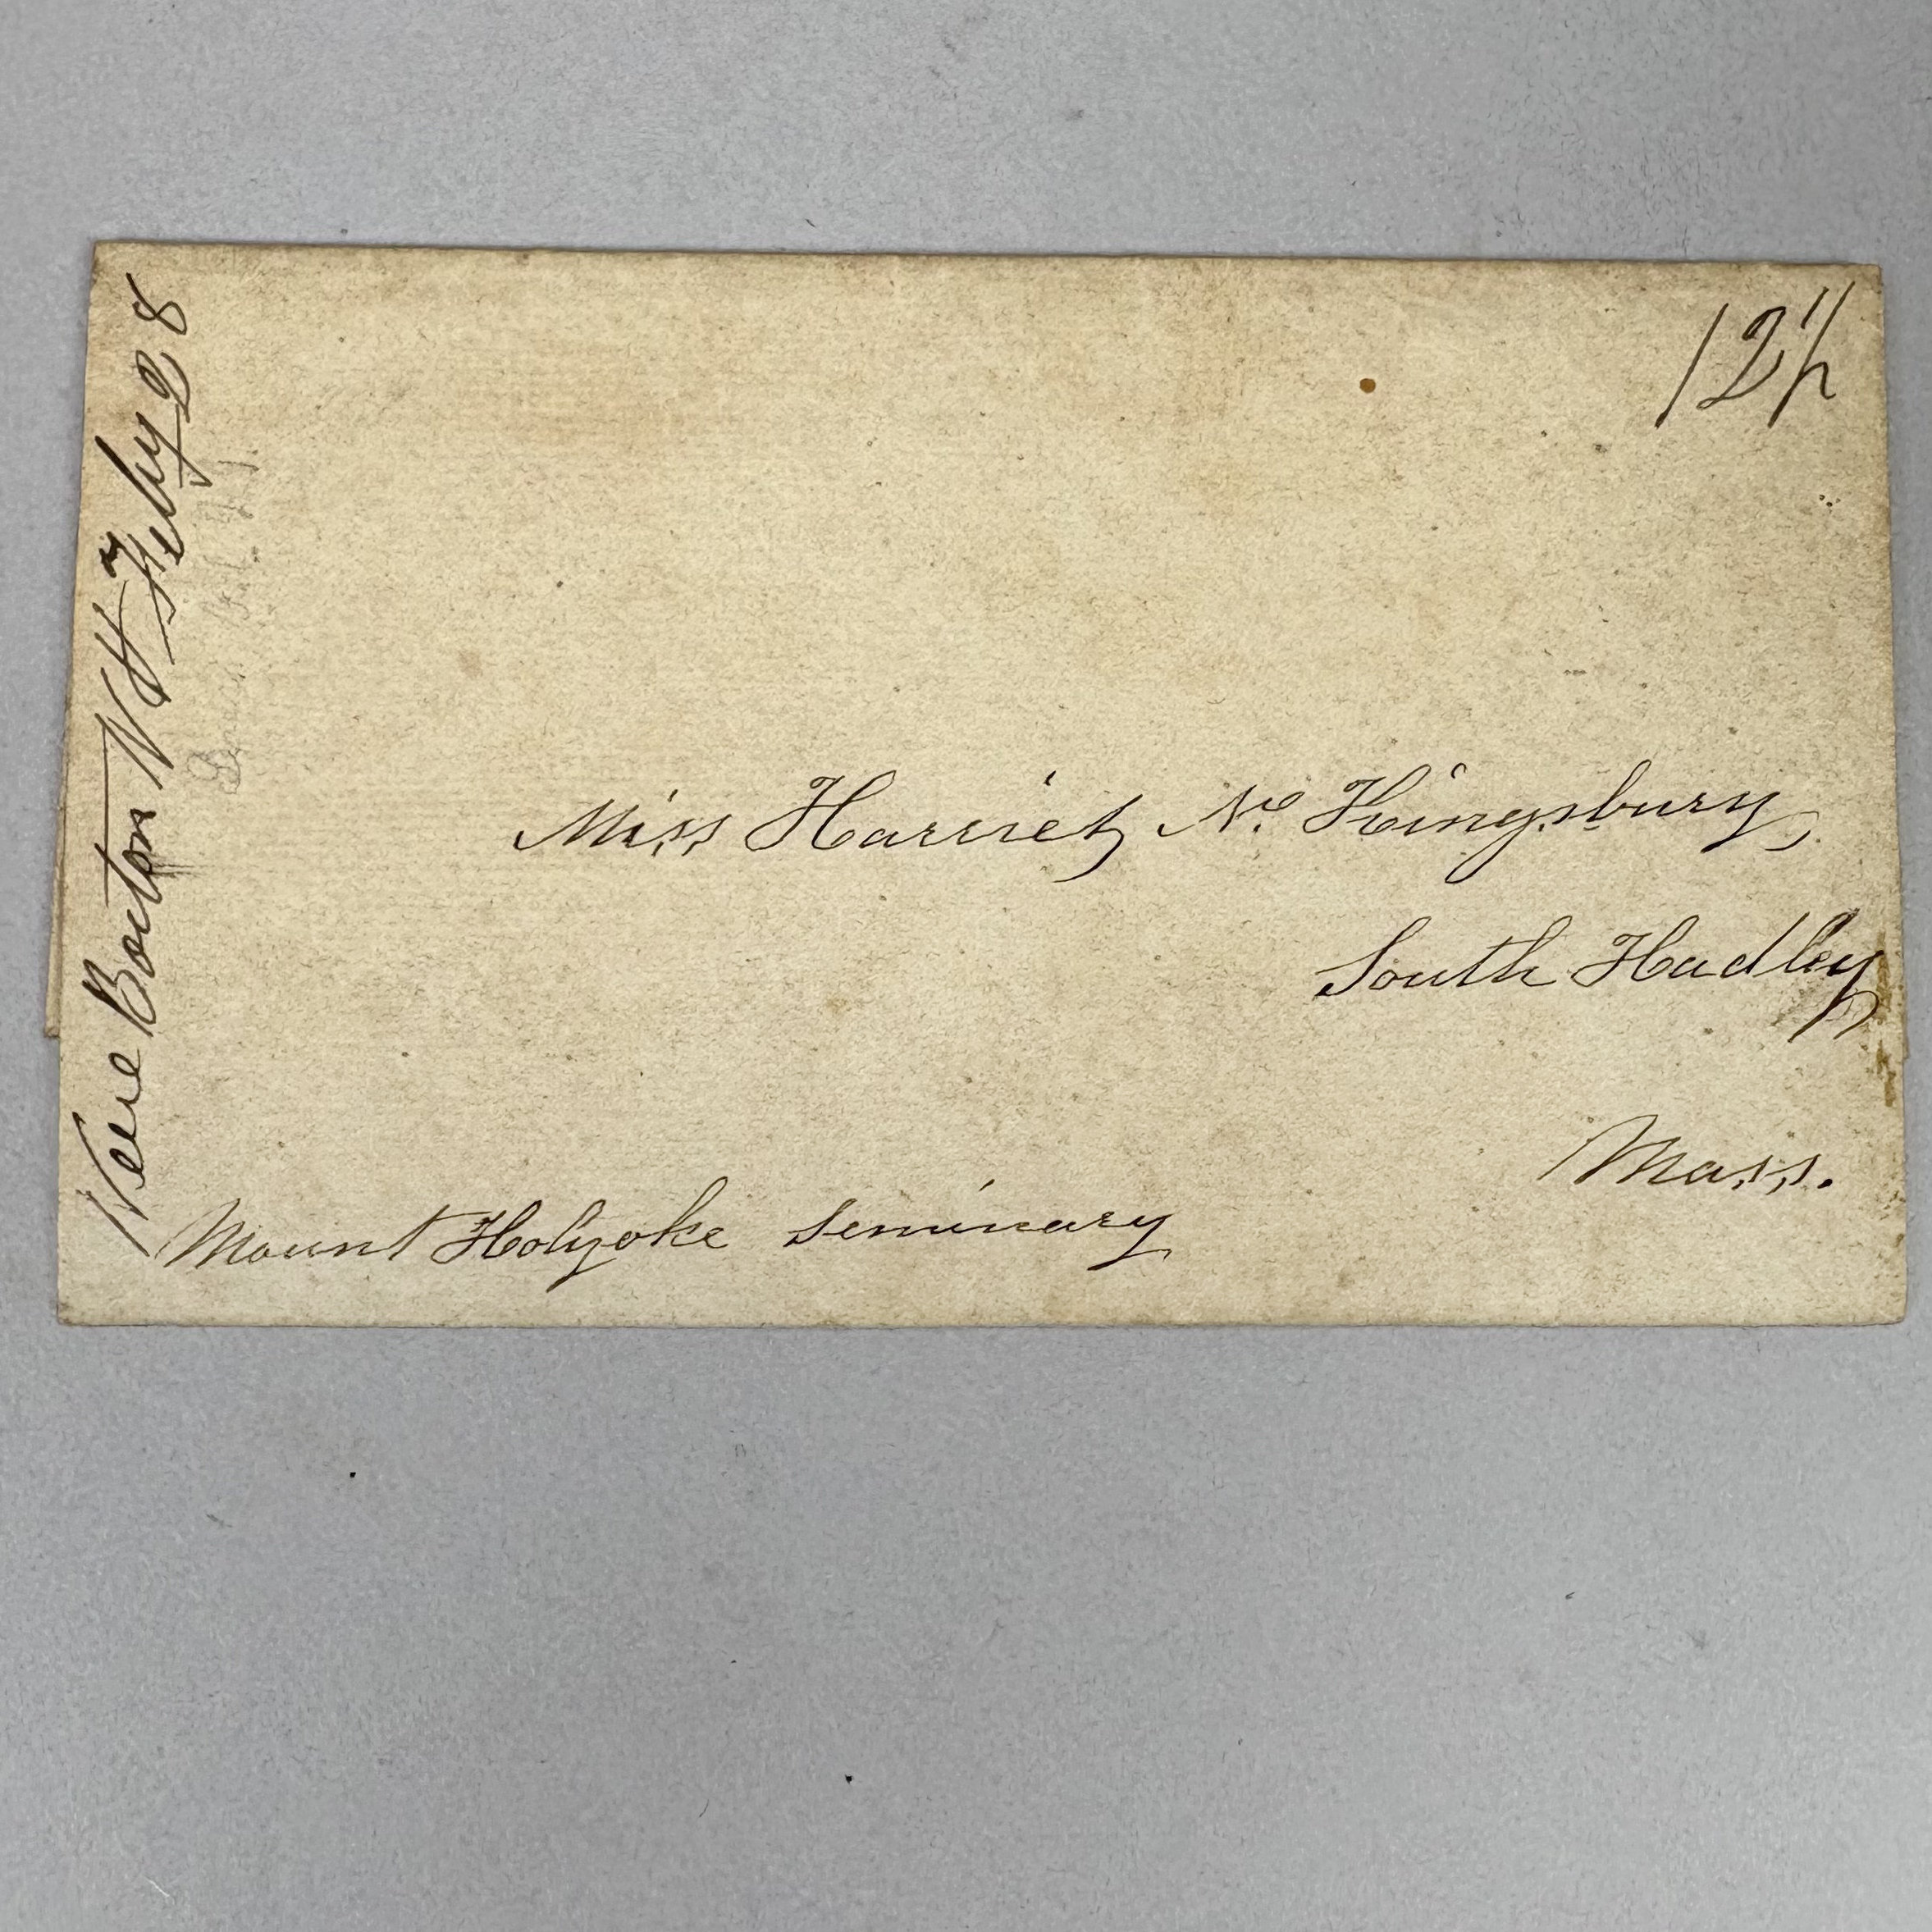 New Boston N H Feby 28
12½
Miss Harriet N. Kingsbury,
South Hadley
Mass.
Mount Holyoke Seminary